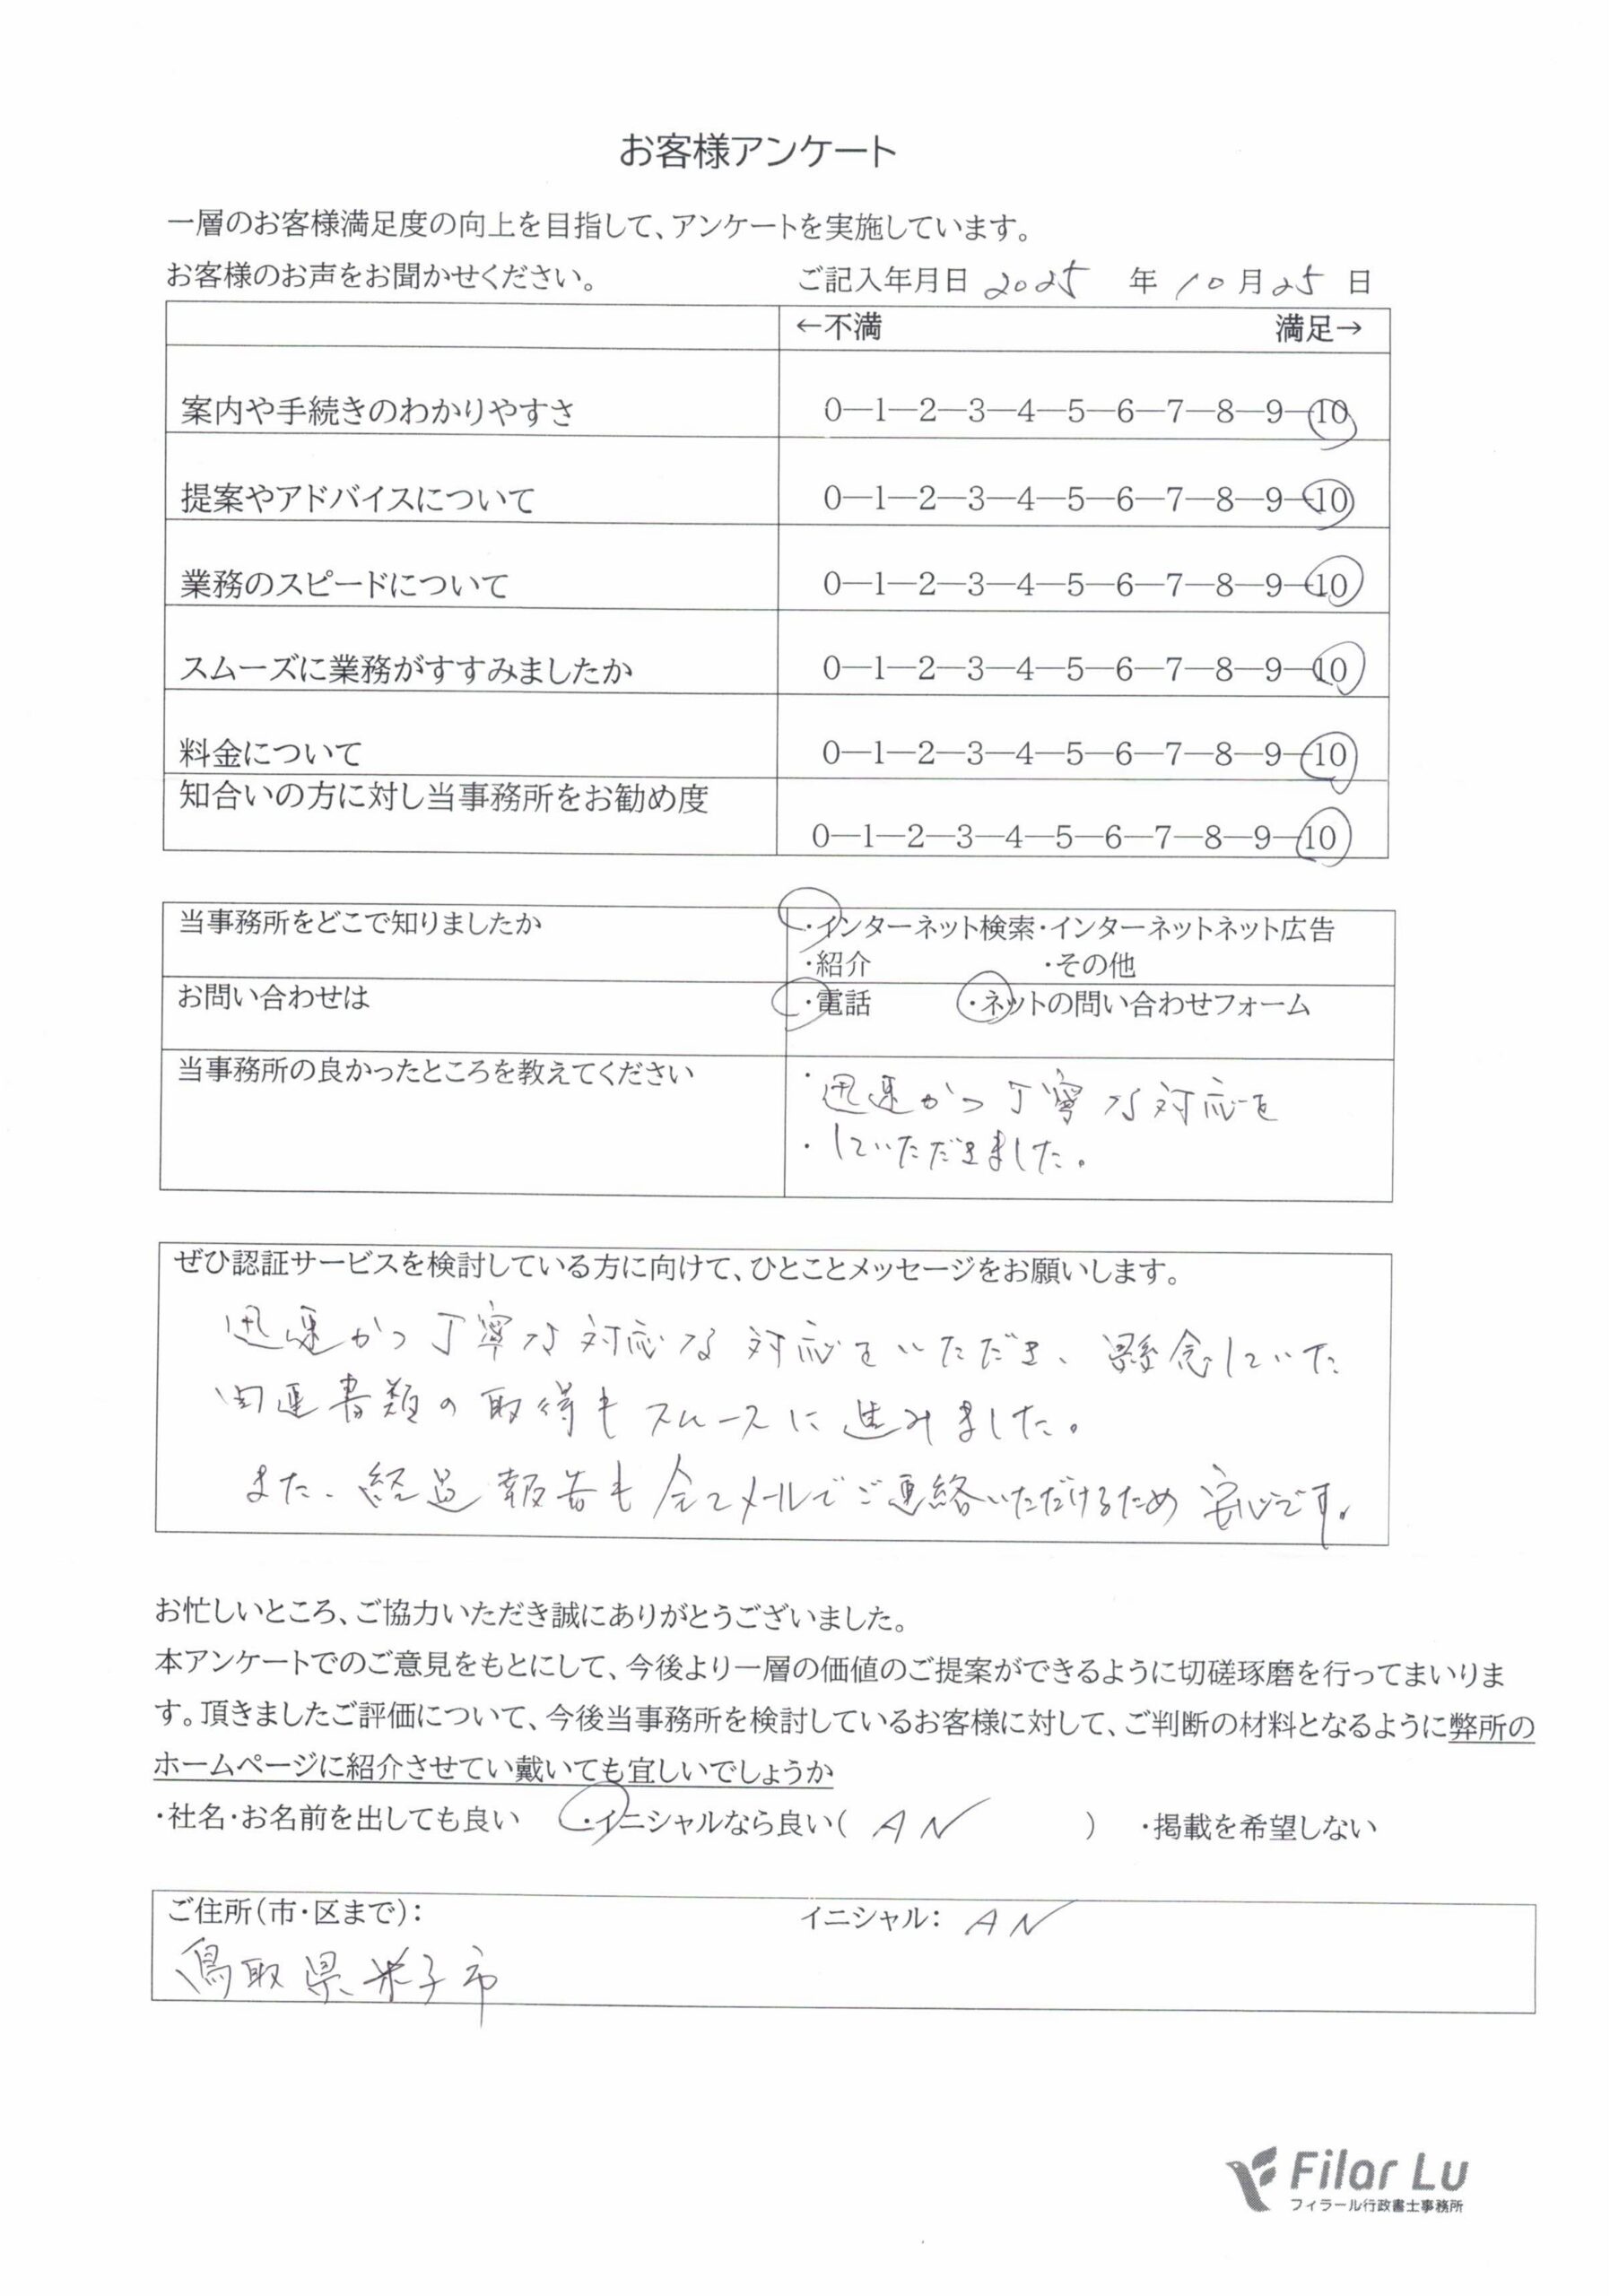 お客様アンケート
一層のお客様満足度の向上を目指して、アンケートを実施しています。
お客様のお声をお聞かせください。 ご記入年月日 2025 年 10 月 25 日
←不満 満足→
案内や手続きのわかりやすさ 0―1―2―3―4―5―6―7―8―9―10
提案やアドバイスについて 0―1―2―3―4―5―6―7―8―9―10
業務のスピードについて 0―1―2―3―4―5―6―7―8―9―10
スムーズに業務がすすみましたか 0―1―2―3―4―5―6―7―8―9―10
料金について 0―1―2―3―4―5―6―7―8―9―10
知合いの方に対し当事務所をお勧め度
0―1―2―3―4―5―6―7―8―9―10
当事務所をどこで知りましたか ・インターネット検索・インターネットネット広告
・紹介 ・その他
お問い合わせは ・電話 ・ネットの問い合わせフォーム
当事務所の良かったところを教えてください
・迅速かつ丁寧な対応を
・していただきました。
ぜひ認証サービスを検討している方に向けて、ひとことメッセージをお願いします。
迅速かつ丁寧な対応な対応をいただき、懸念していた
関連書類の取得もスムースに進みました。
また、経過報告も全てメールでご連絡いただけるため安心です。
お忙しいところ、ご協力いただき誠にありがとうございました。
本アンケートでのご意見をもとにして、今後より一層の価値のご提案ができるように切磋琢磨を行ってまいりま
す。頂きましたご評価について、今後当事務所を検討しているお客様に対して、ご判断の材料となるように弊所の
ホームページに紹介させてい戴いても宜しいでしょうか
・社名・お名前を出しても良い ・イニシャルなら良い( AN ) ・掲載を希望しない
ご住所(市・区まで): イニシャル: AN
鳥取県米子市
Filar Lu
フィラール行政書士事務所